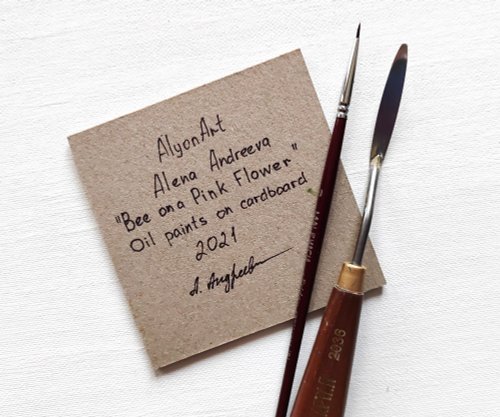 AlyonArt
Alena Andreeva
"Bee on a Pink Flower"
Oil paints on cardboard
2021
А. Андреева
2036